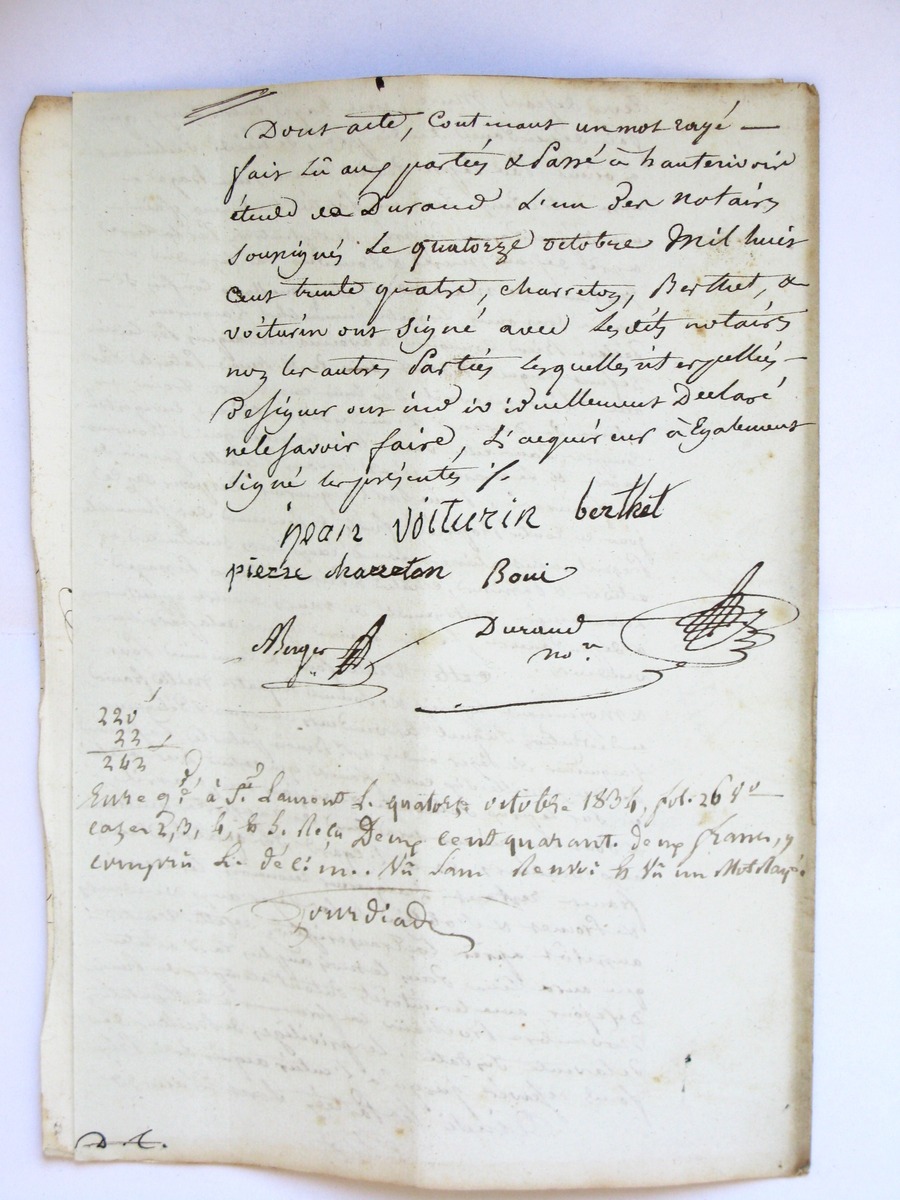 Dont acte, Contenant un mot rayé —
fait lû aux parties & Passé à hauterivoire
étude de Durand L'un des notaires
soussignés Le quatorze octobre Mil huit
cent trente quatre, charreton, Berthet, &
voiturin ont signé avec Lesdits notaires
non les autres Parties lesquelles interpellées —
de signer ont individuellement Declaré
ne le savoir faire, L'acquéreur à Egalement
signé les présentes ./.
jean voiturin berthet
pierre charreton Boui
ABerger Durand
nore
220
22
242
Enregé à St Laurent Le quatorze octobre 1834, fol. 26 Vo
cazes 2, 3, 4, & 5. Reçu Deux cent quarante deux francs, y
compris Le décime. Vu sans Renvoi & Vu un Mot Rayé.
D. L.